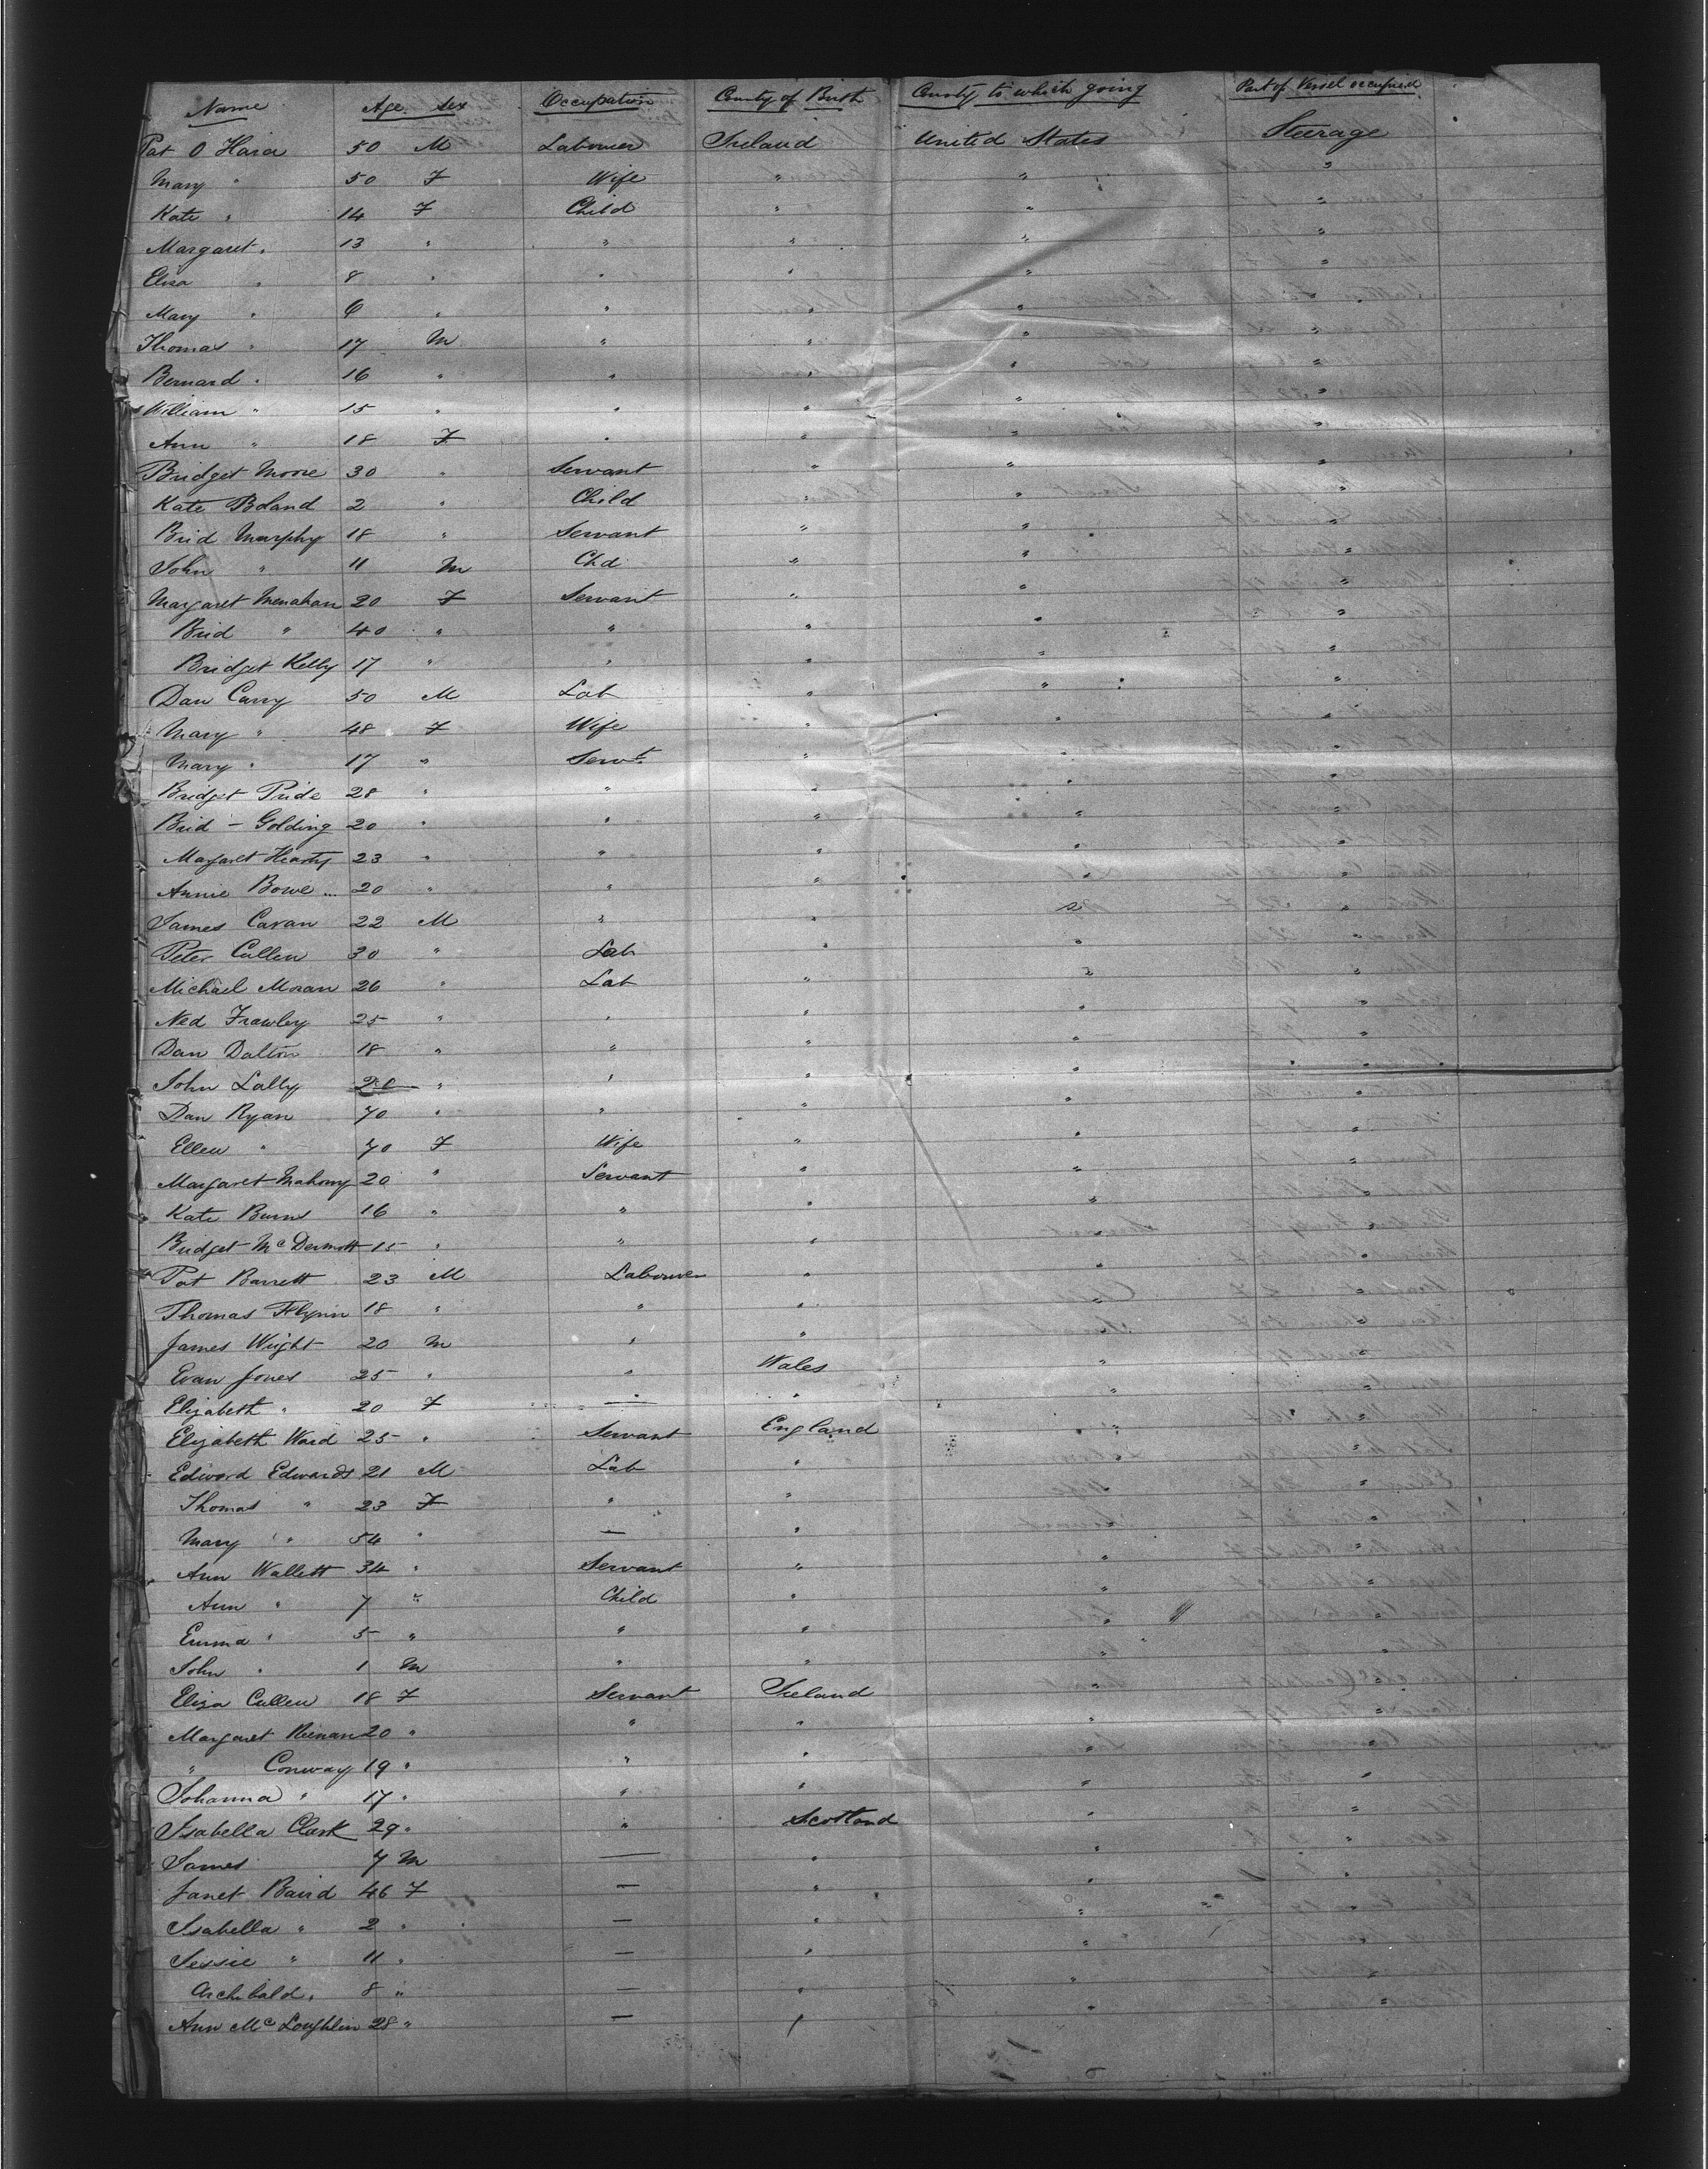 Name Age Sex Occupation County of Birth County to which going Part of Vessel occupied
Pat O Hara 50 M Labourer Ireland United States Steerage
Mary " 50 F Wife " " "
Kate " 14 F Child " " "
Margaret " 13 " " " " "
Eliza " 8 " " " " "
Mary " 6 " " " " "
Thomas " 17 M " " " "
Bernard " 16 " " " " "
William " 15 " " " " "
Ann " 18 F " " " "
Bridget Moore 30 " Servant " " "
Kate Boland 2 " Child " " "
Brid Murphy 18 " Servant " " "
John " 11 M Chd " " "
Margaret Menahan 20 F Servant " " "
Brid " 40 " " " " "
Bridget Kelly 17 " " " " "
Dan Carry 50 M Lab " " "
Mary " 48 F Wife " " "
Mary " 17 " Servt. " " "
Bridget Pride 28 " " " " "
Brid - Golding 20 " " " " "
Margaret Hearty 23 " " " " "
Annie Bowe ... 20 " " " " "
James Cavan 22 M " " " "
Peter Cullen 30 " Lab " " "
Michael Moran 26 " Lab " " "
Ned Frawley 25 " " " " "
Dan Dalton 18 " " " " "
John Lally 20 " " " " "
Dan Ryan 70 " " " " "
Ellen " 70 F Wife " " "
Margaret Mahony 20 " Servant " " "
Kate Burns 16 " " " " "
Bridget McDermott 15 " " " " "
Pat Barrett 23 M Labourer " " "
Thomas Flynn 18 " " " " "
James Wright 20 M " " "
Evan Jones 25 " " Wales " "
Elizabeth " 20 F — " " "
Elizabeth Ward 25 " Servant England " "
Edward Edwards 21 M Lab " " "
Thomas " 23 F " " "
Mary " 54 " — " "
Ann Wallett 34 " Servant " " "
Ann " 7 " Child " " "
Emma " 5 " " " " "
John " 1 M " " " "
Eliza Cullen 18 F Servant Ireland " "
Margaret Keenan 20 " " " " "
" Conway 19 " " " " "
Johanna " 17 " " " " "
Isabella Clark 29 " " Scotland " "
James 7 M — " " "
Janet Baird 46 F — " " "
Isabella " 2 " — " " "
Jessie " 11 " — " " "
Archibald " 8 " — " " "
Ann McLoughlin 28 " — " " "